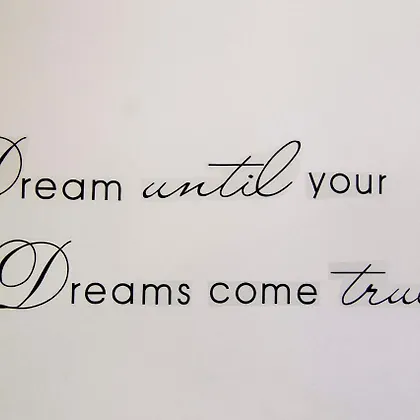 Dream until your
Dreams come true